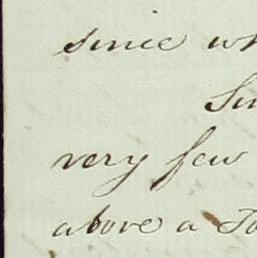 since wh
Su
very few
above a To